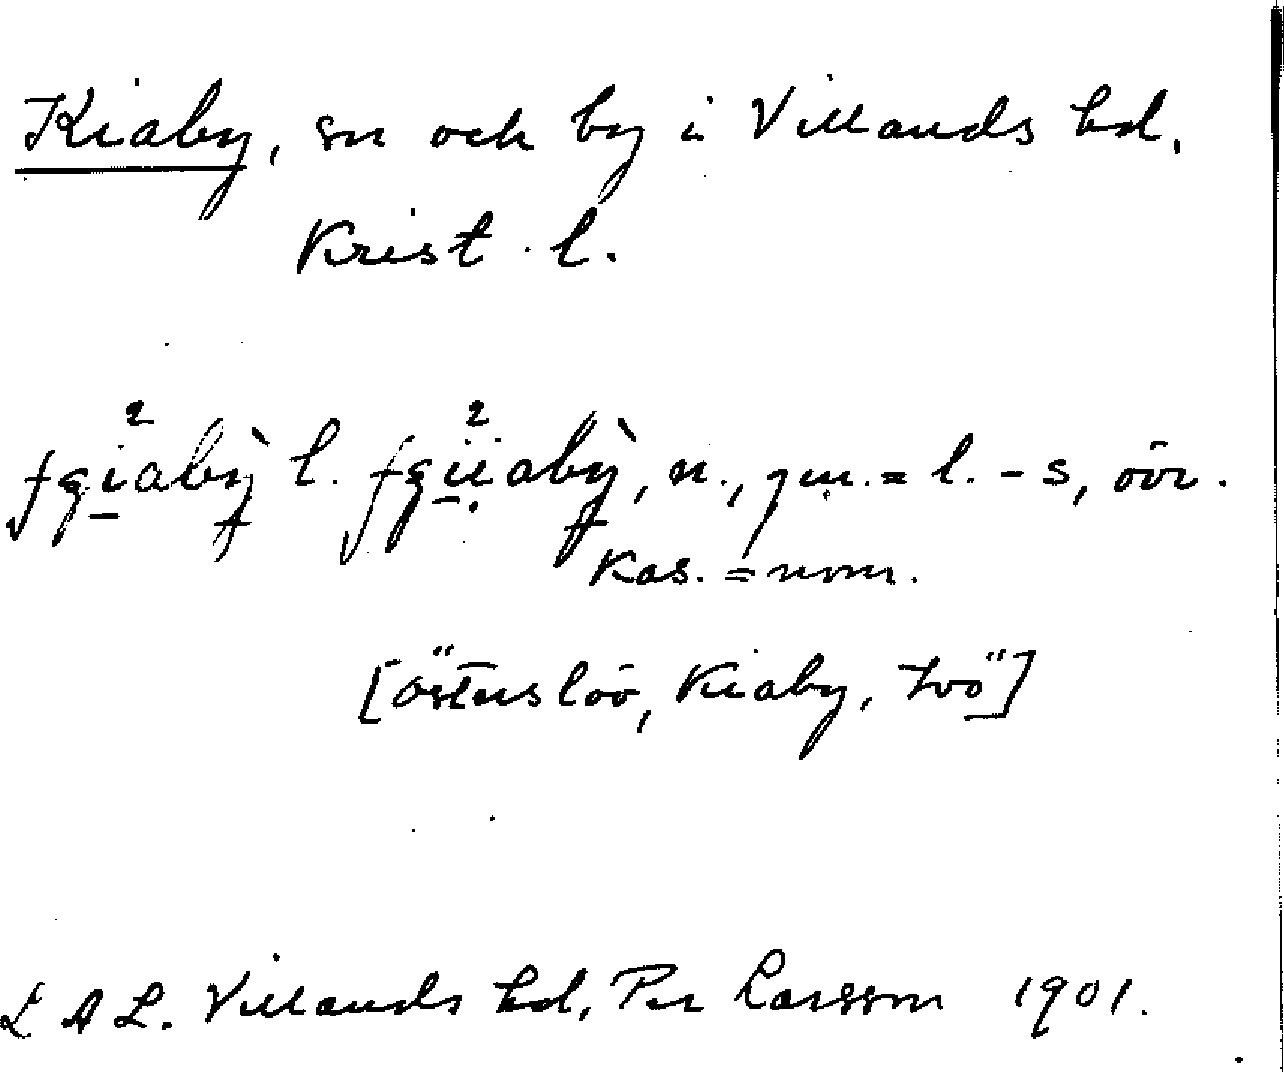 Kiaby, sn och by i Villands hd.
Krist. l.
l. n., gen. = l. -s, övr.
kas. = nom.
[Österslöv, Kiaby, Ivö"]
L A L. Villands hd, Per Larsson 1901.